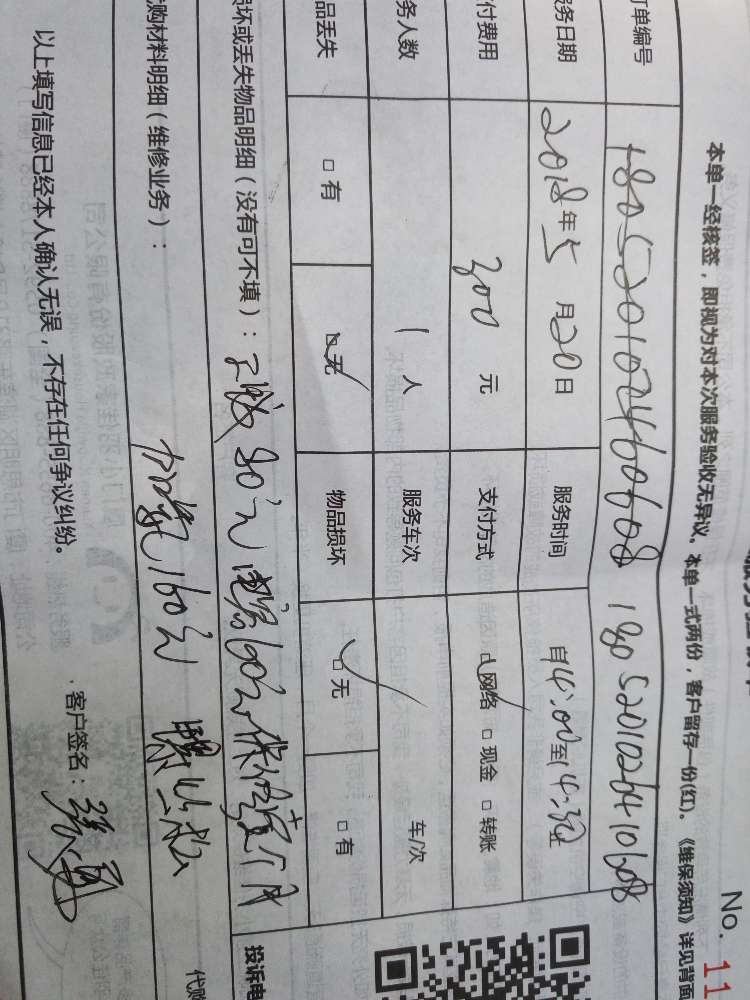 No. 11
本单一经核签，即视为对本次服务验收无异议。本单一式两份，客户留存一份(红)。《维保须知》详见背面
订单编号 180520102460608 1805201026410608
服务日期 2018年5月20日 服务时间 自14:00至14:30
支付费用 300元 支付方式 □网络 □现金 □转账
服务人数 1人 服务车次 车/次
物品丢失 □有 □无 物品损坏 □无 □有
损坏或丢失物品明细（没有可不填）： 80元 60元
代购材料明细（维修业务）： 加氟160元
投诉电
代购
以上填写信息已经本人确认无误，不存在任何争议纠纷。 客户签名：